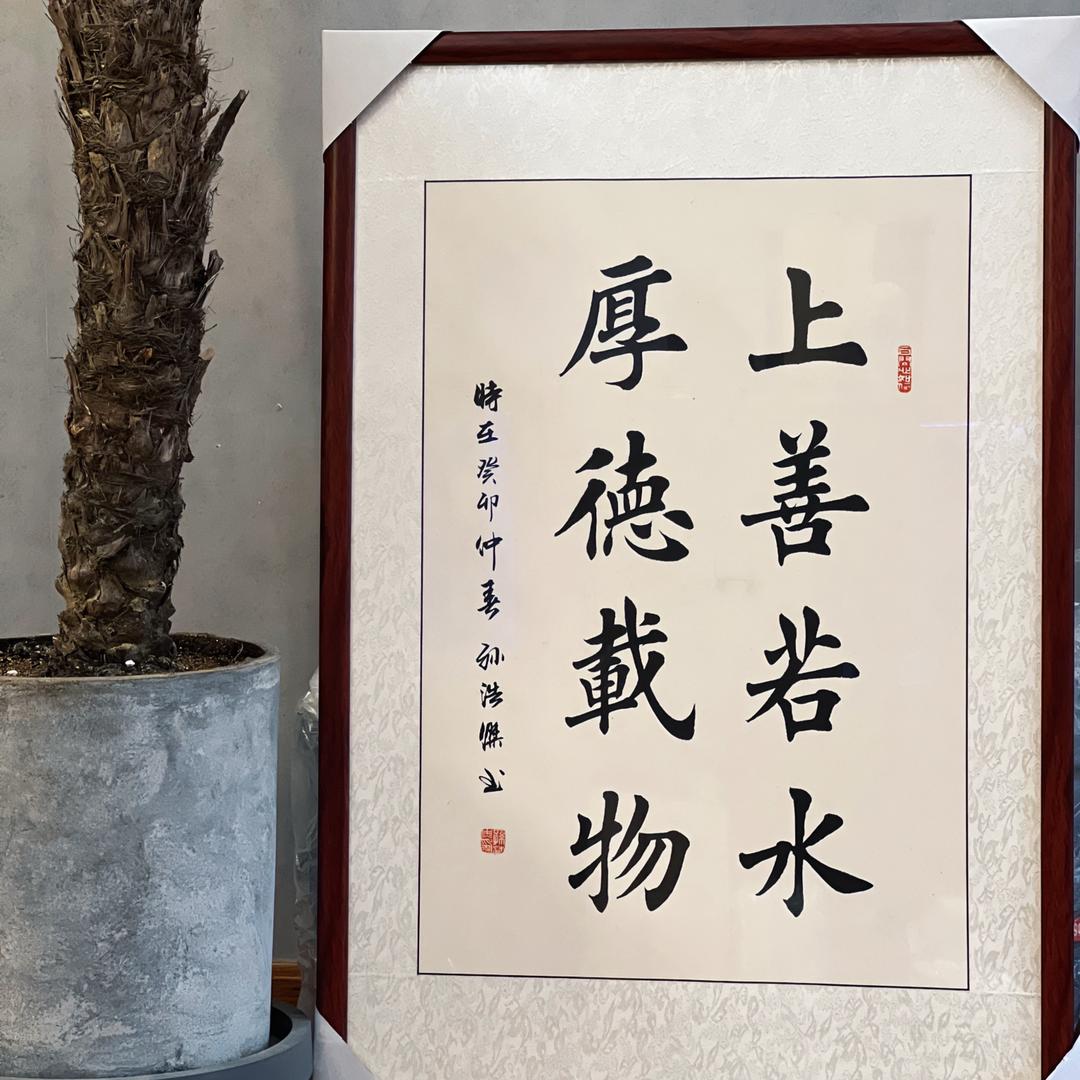 上善若水
厚德載物
時在癸卯仲春 孫浩傑書